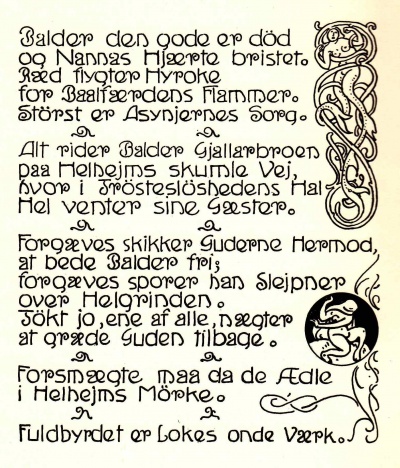 Balder den gode er död
og Nannas Hjærte bristet.
Ræd flygter Hyroke
for Baalfærdens Flammer.
Störst er Asynjernes Sorg.
Alt rider Balder Gjallarbroen
paa Helhejms skumle Vej,
hvor i Trösteslöshedens Hal
Hel venter sine Gæster.
Forgæves skikker Guderne Hermod,
at bede Balder fri;
forgæves sporer han Slejpner
over Helgrinden.
Tökt jo, ene af alle, nægter
at græde Guden tilbage.
Forsmægte maa da de Ædle
i Helhejms Mörke.
Fuldbyrdet er Lokes onde Værk.